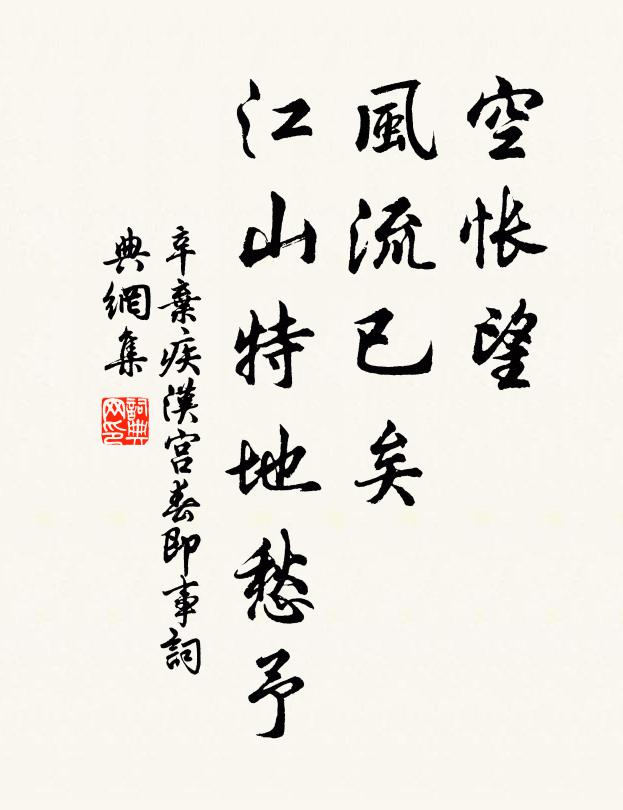 空悵望
風流已矣
江山特地愁予
辛棄疾漢宮春即事詞
典網集
詞典網印